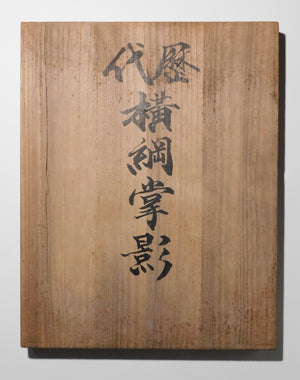 歴代
横綱掌影